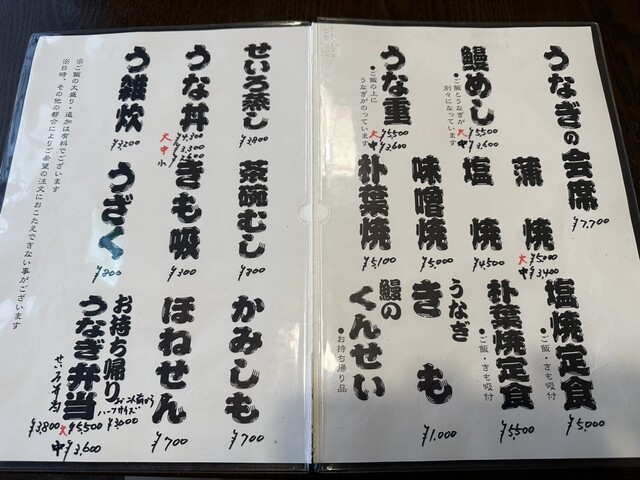 うなぎの会席
¥7,700
鰻めし
・ご飯とうなぎが
別々になっています
大 ¥5,500
中 ¥3,600
うな重
・ご飯の上に
うなぎがのっています
大 ¥5,500
中 ¥3,600
蒲焼
大 ¥5,000
中 ¥3,400
塩焼
¥4,500
味噌焼
¥5,000
朴葉焼
¥5,100
塩焼定食
・ご飯・きも吸付
¥5,000
朴葉焼定食
・ご飯・きも吸付
¥5,500
うなぎ
きも
¥1,000
鰻の
くんせい
・お持ち帰り品
せいろ蒸し
¥3,800
うな丼
大 ¥4,300
中 ¥3,300
小
う雑炊
¥3,200
茶碗むし
¥800
きも吸
¥300
うざく
¥800
かみしも
¥700
ほねせん
¥700
お持ち帰り
うなぎ弁当
ハーフサイズ
¥3,000
大 ¥5,500
中 ¥3,600
¥3,800
※ご飯の大盛り・追加は有料でございます
※日時、その他の都合によりご希望の注文におこたえできない事がございます